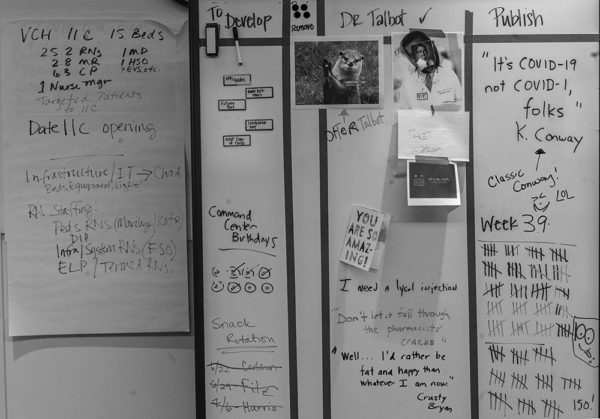 VCH 11C 15 Beds
25.2 RNs 1 MD
2.8 MR 1 HSO
6.3 CP 7 EVS, etc.
1 Nurse Mgr
Targeted Patients
to 11C
Date 11C opening
Infrastructure/IT → Chad
Beds, Equipment,
RN Staffing:
Peds RNs (Marilyn/Kathie)
DIP
Infra/System RNs (FSO)
ELP / Termed RNs
To
Develop
Command
Center
Birthdays
Snack
Rotation
6/22 Carlson
6/29 Fitz
4/6 Harris
Remote
DR Talbot ✓
OttER Talbot
YOU
ARE SO
AMAZ-
ING!
I need a lysol injection
"Don't let it fall through
the pharmacists'
cracks"
"Well... I'd rather be
fat and happy than
whatever I am now."
Crusty
Bryan
Publish
"It's COVID-19
not COVID-1,
folks"
K. Conway
Classic
Conway!
LOL
Week 39
150!